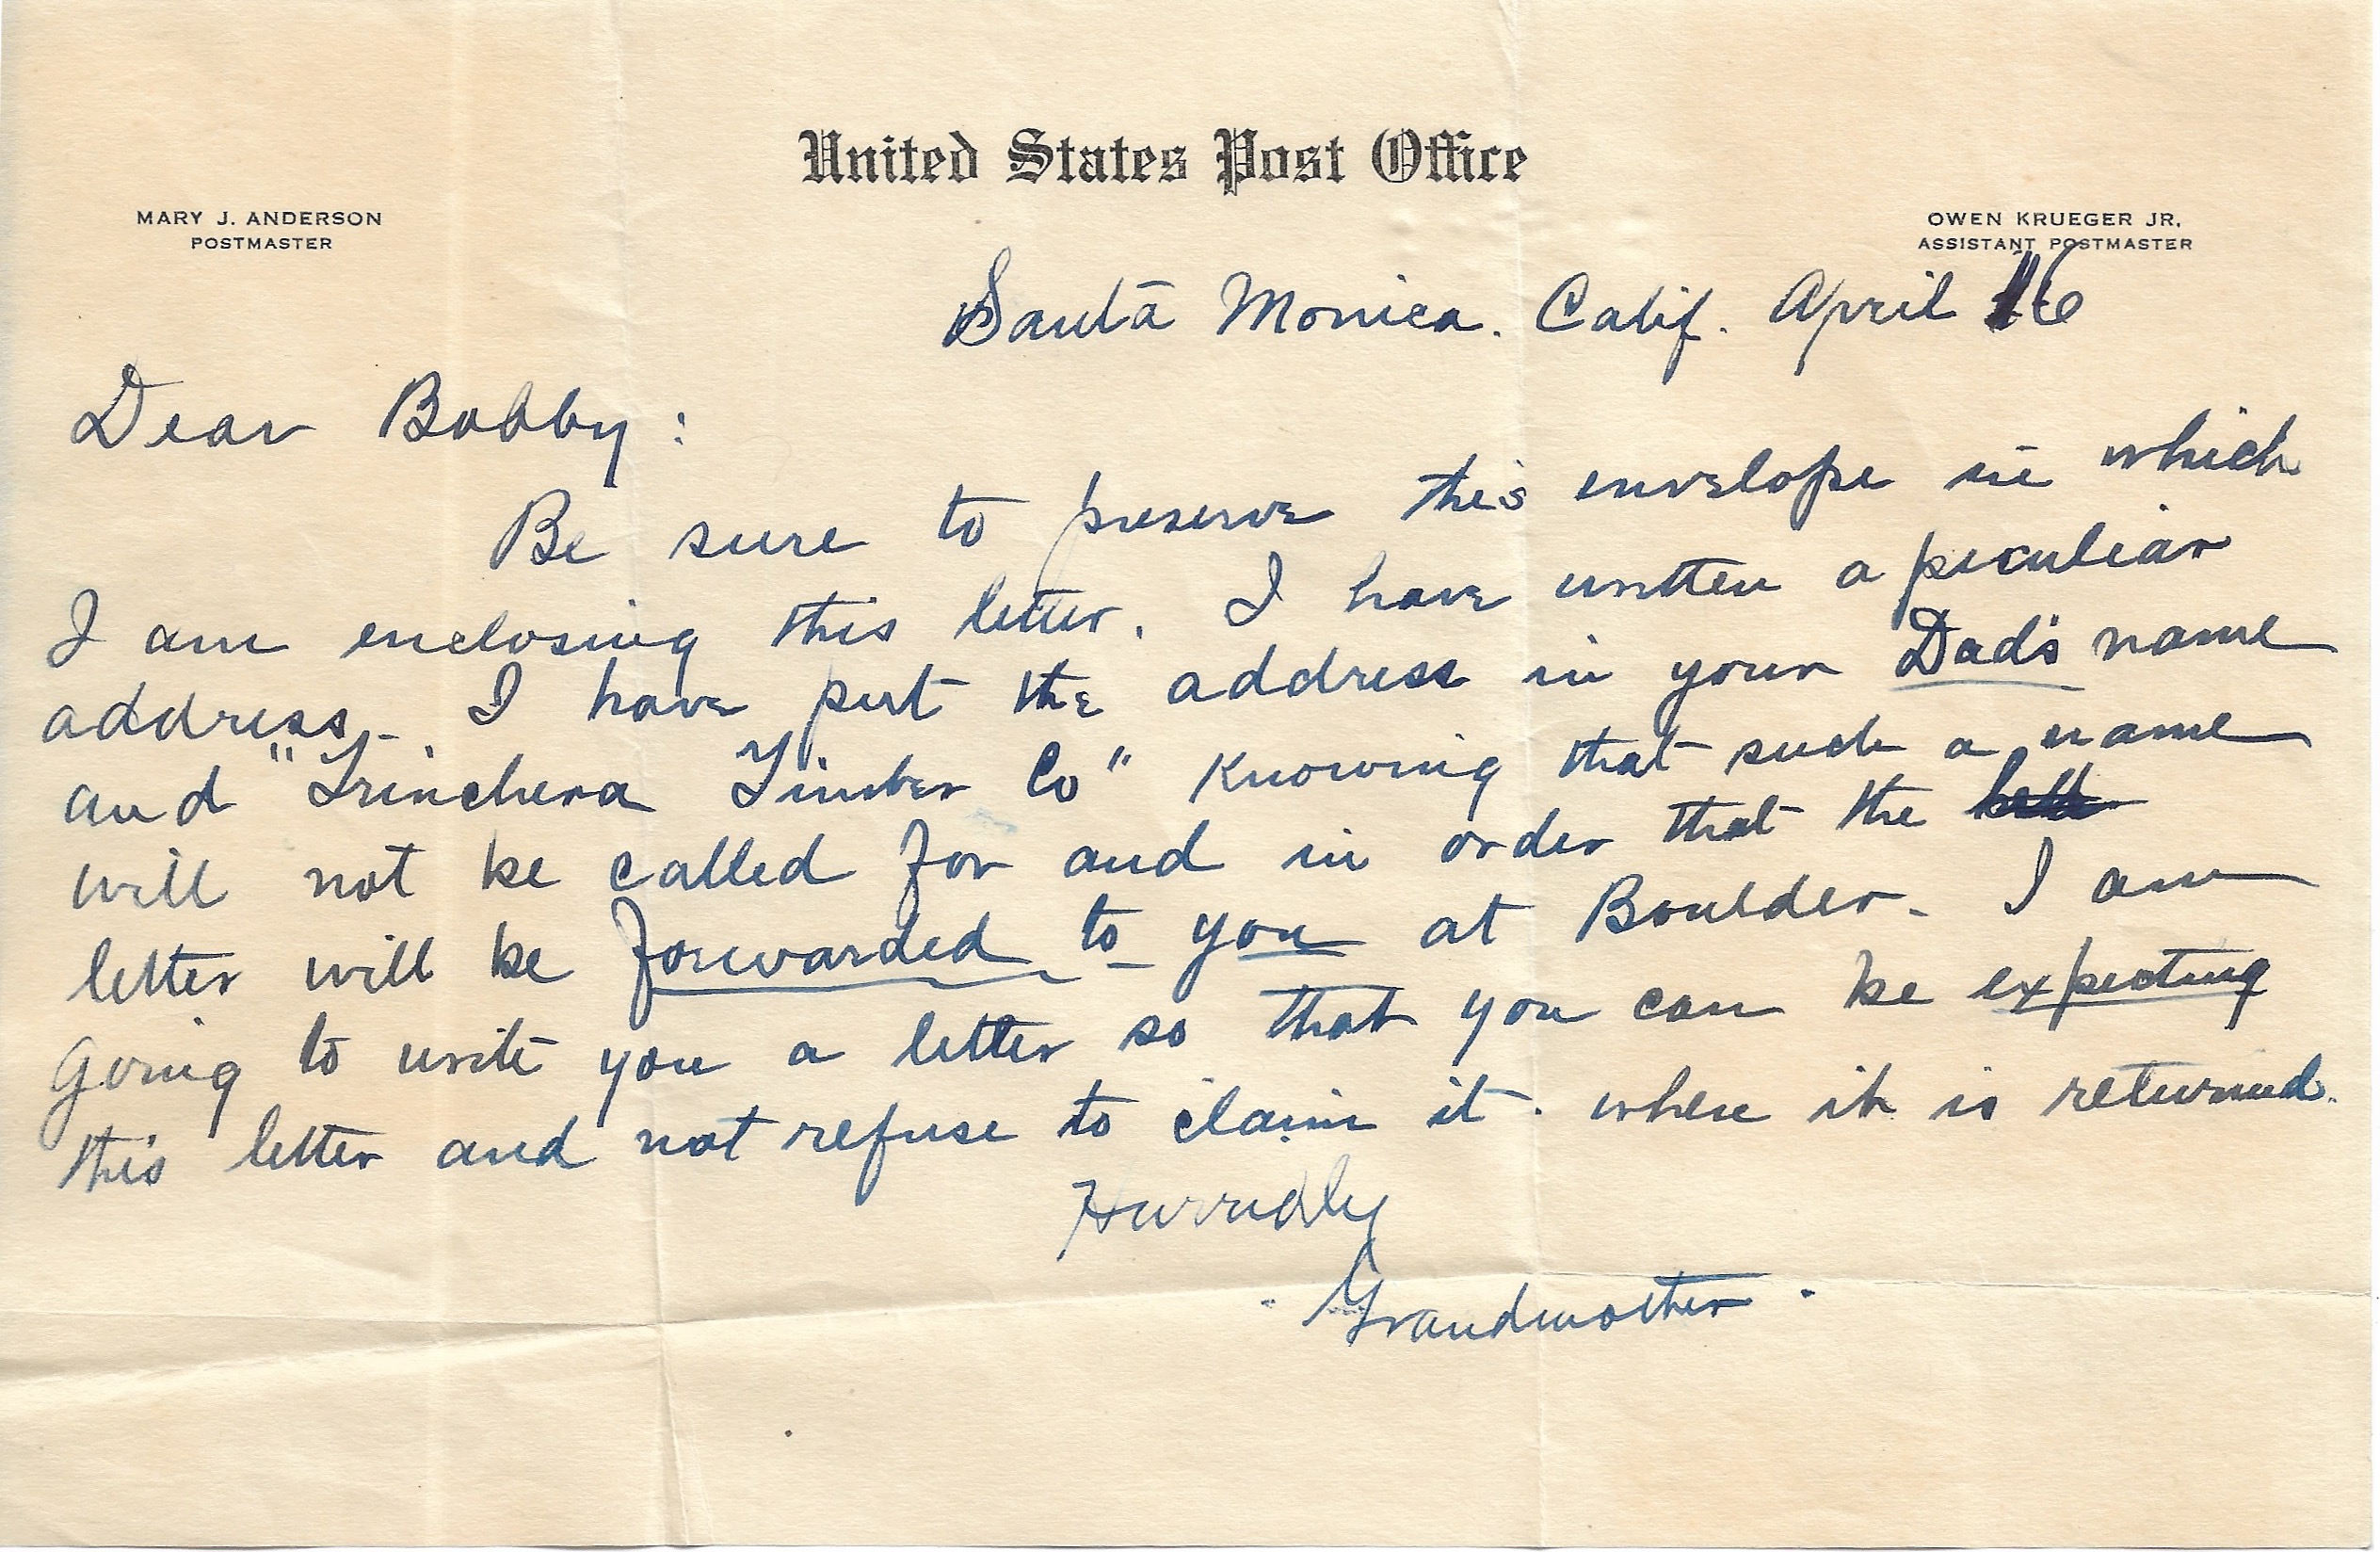 United States Post Office
MARY J. ANDERSON
POSTMASTER
OWEN KRUEGER JR.
ASSISTANT POSTMASTER
Santa Monica. Calif. April 16
Dear Bobby:
Be sure to preserve this envelope in which
I am enclosing this letter. I have written a peculiar
address. I have put the address in your Dad's name
and "Trinchera Timber Co" Knowing that such a name
will not be called for and in order that the
letter will be forwarded to you at Boulder. I am
going to write you a letter so that you can be expecting
this letter and not refuse to claim it. when it is returned.
Hurridly
Grandmother.